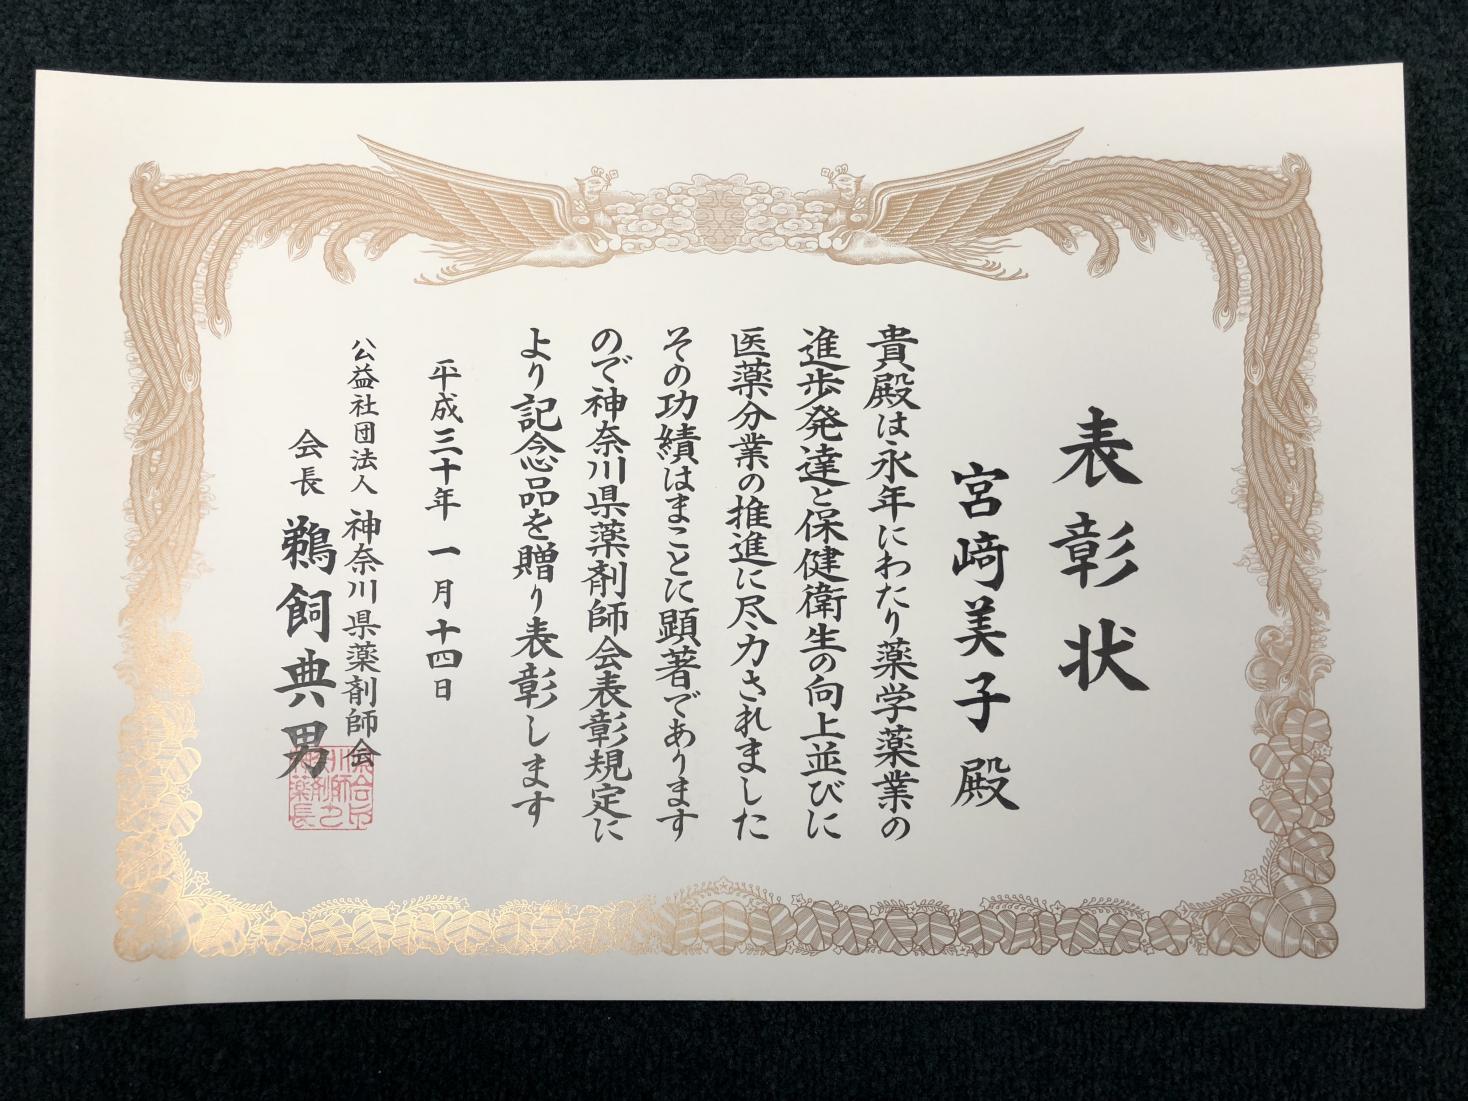 表彰状
宮﨑美子殿
貴殿は永年にわたり薬学薬業の
進歩発達と保健衛生の向上並びに
医薬分業の推進に尽力されました
その功績はまことに顕著であります
ので神奈川県薬剤師会表彰規定に
より記念品を贈り表彰します
平成三十年一月十四日
公益社団法人 神奈川県薬剤師会
会長 鵜飼典男